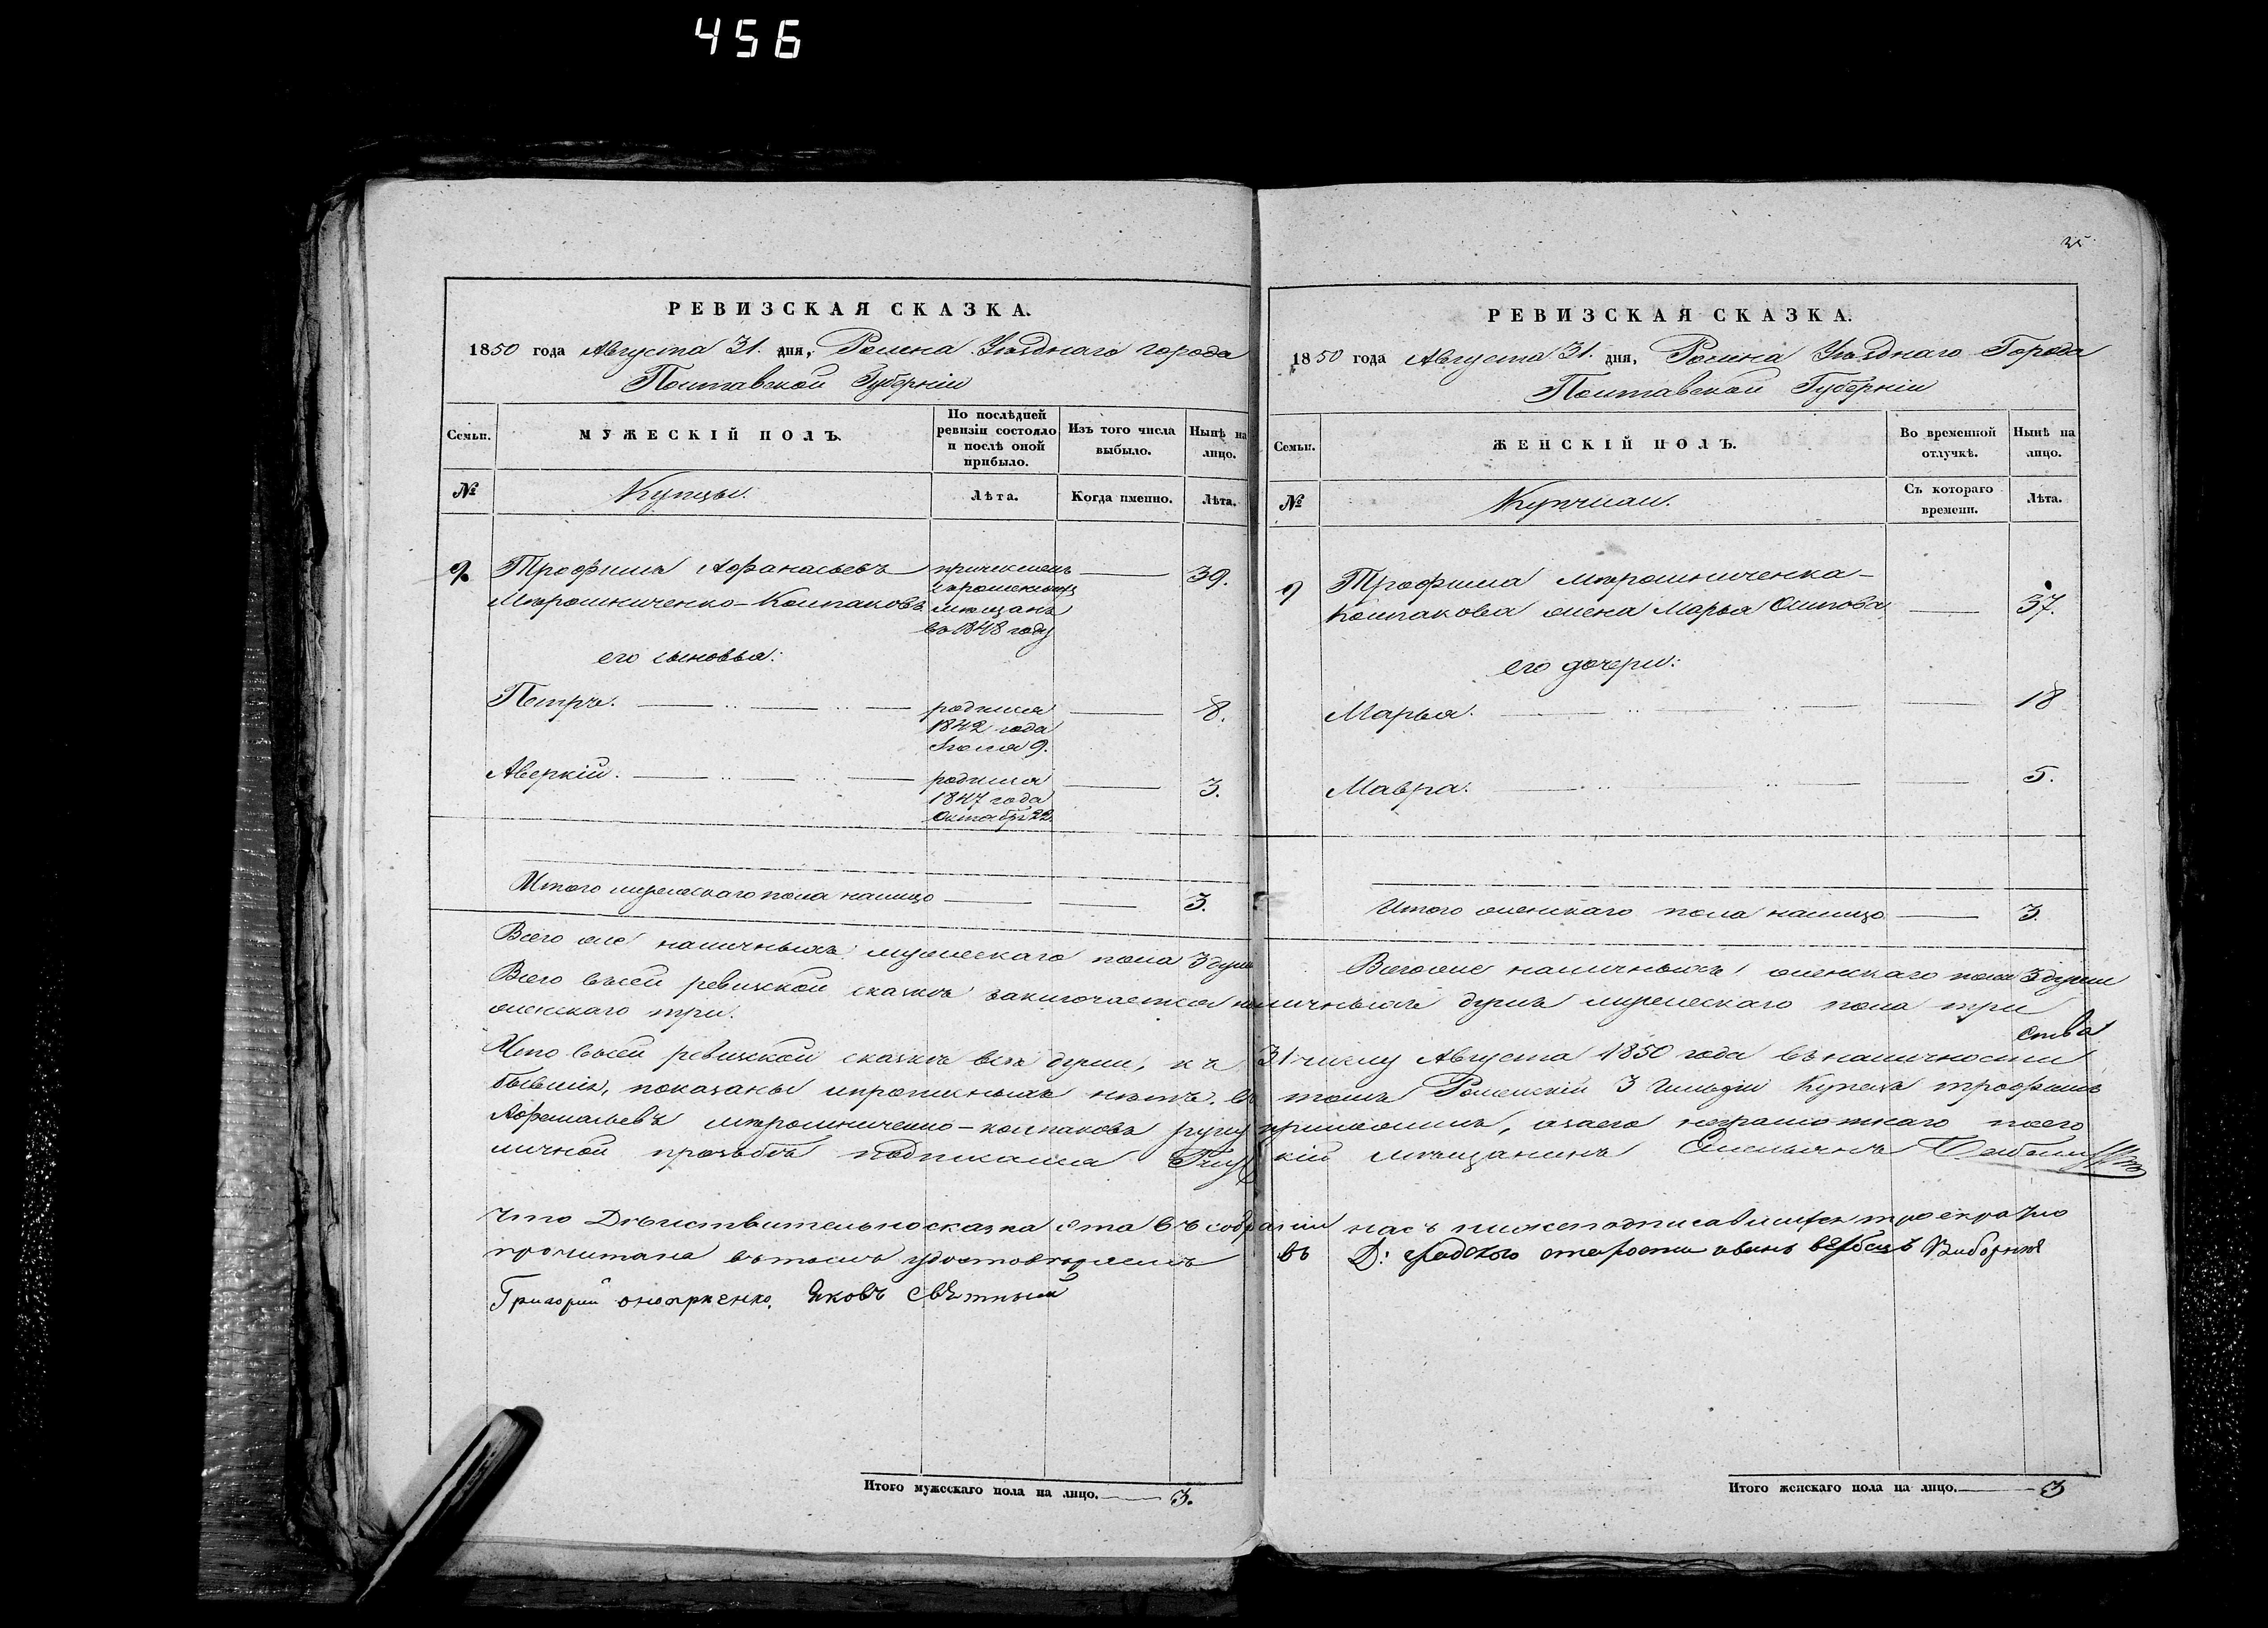 456
35
РЕВИЗСКАЯ СКАЗКА.
1850 года Августа 31. дня, Ромена Уѣзднаго города
Полтавской Губерніи
Семьи.
МУЖЕСКІЙ ПОЛЪ.
По послѣдней ревизіи состояло и послѣ оной прибыло.
Изъ того числа выбыло.
Нынѣ на лицо.
№
Купцы.
Лѣта.
Когда именно.
Лѣта.
9. Трофимъ Афанасьевъ причисленъ 39.
Мирошниченко-Колпаковъ
мѣщанъ
въ 1848 году
его сыновья:
Петръ. родился 8.
1842 года
Іюля 9.
Аверкій. родился 3.
1847 года
Октября 22.
Итого мужескаго пола налицо 3.
Всего же наличныхъ мужескаго пола 3 души
РЕВИЗСКАЯ СКАЗКА.
1850 года Августа 31. дня, Ромена Уѣзднаго Города
Полтавской Губерніи
Семьи.
ЖЕНСКІЙ ПОЛЪ.
Во временной отлучкѣ.
Нынѣ на лицо.
№
Купчихи.
Съ котораго времени.
Лѣта.
9 Трофима Мирошниченка-
Колпакова жена Марья Осипова 37.
его дочери:
Марья. 18
Мавра. 5.
Итого женскаго пола налицо 3.
Всего же наличныхъ женскаго пола 3 души
Всего въсей ревизской сказкѣ заключается наличныхъ душъ мужескаго пола три
женскаго три.
ства
Что въсей ревизской сказкѣ всѣ души, къ 31 числу Августа 1850 года въ наличности
бывшія, показаны и прописныхъ нѣтъ. въ томъ Роменскій 3 Гильдіи Купецъ Трофимъ
Афанасьевъ Мирошниченко-Колпаковъ руку приложилъ, а заего неграмотнаго поего
личной прозьбѣ подписался мѣщанинъ
Что Дѣйствительно сказка эта въ собраніи насъ нижеподписавшихся троекратно
прочитана въ томъ удостовѣряемъ въ Д: Градского старости иванъ вербецъ Виборние
Григорий Яковъ
Итого мужескаго пола на лицо. 3.
Итого женскаго пола на лицо. 3